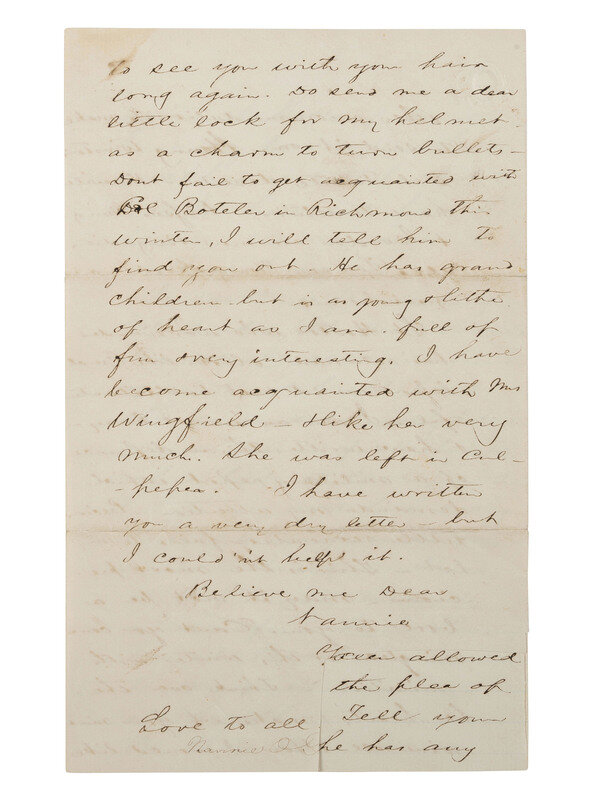 to see you with your hair
long again. Do send me a dear
little lock for my helmet.
as a charm to turn bullets –
Dont fail to get acquainted with
Col Boteler in Richmond this
winter, I will tell him to
find you out. He has grand
children but is as young & lithe
of heart as I am. full of
fun & very interesting. I have
become acquainted with Mrs
Wingfield – & like her very
much. She was left in Cul-
-peper. I have written
you a very dry letter – but
I could'nt help it.
Believe me Dear
Nannie
allowed
the plea of
Love to all Tell your
Nannie he has any